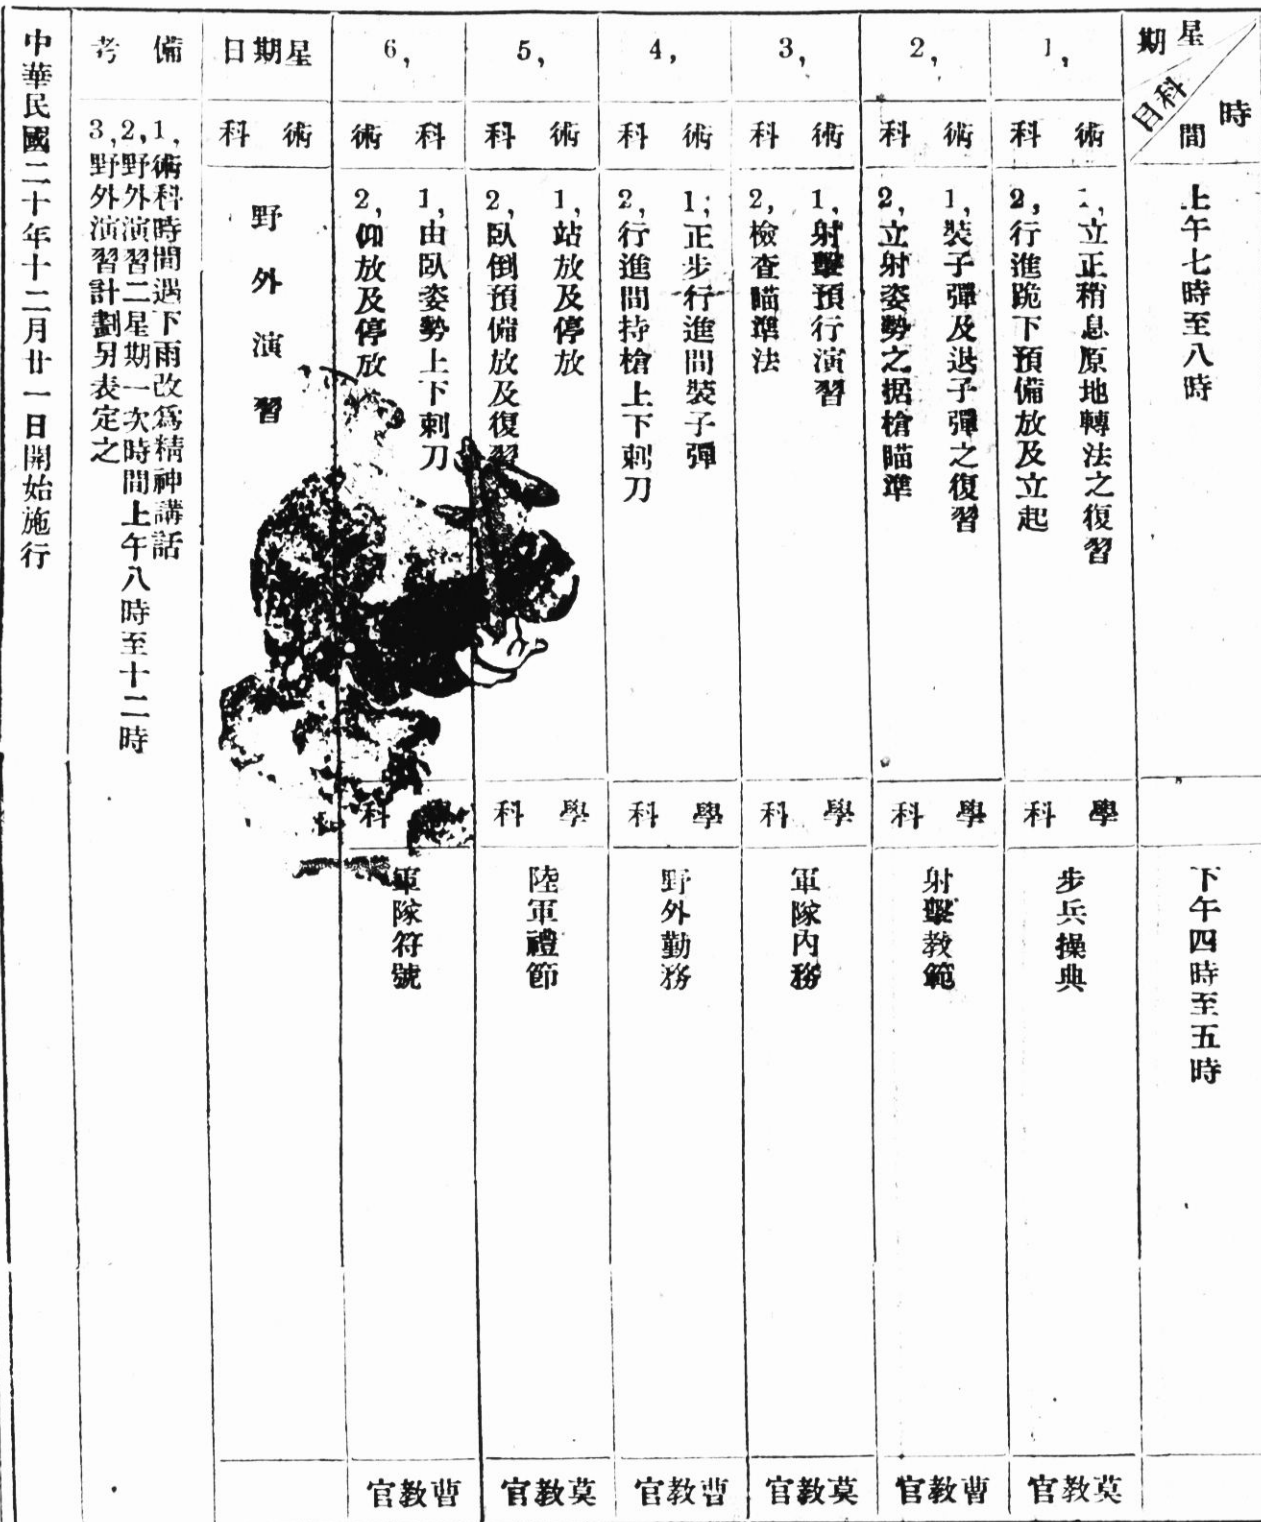 星期
科目
時間
上午七時至八時
下午四時至五時
1,
術科
1,立正稍息原地轉法之復習
2,行進跪下預備放及立起
學科
步兵操典
莫教官
2,
術科
1,裝子彈及退子彈之復習
2,立射姿勢之据槍瞄準
學科
射擊教範
曹教官
3,
術科
1,射擊預行演習
2,檢查瞄準法
學科
軍隊內務
莫教官
4,
術科
1,正步行進間裝子彈
2,行進間持槍上下刺刀
學科
野外勤務
曹教官
5,
術科
1,站放及停放
2,臥倒預備放及復習
學科
陸軍禮節
莫教官
6,
科術
1,由臥姿勢上下刺刀
2,仰放及停放
科
軍隊符號
曹教官
星期日
術科
野外演習
備考
1,術科時間遇下雨改爲精神講話
2,野外演習二星期一次時間上午八時至十二時
3,野外演習計劃另表定之
中華民國二十年十二月廿一日開始施行